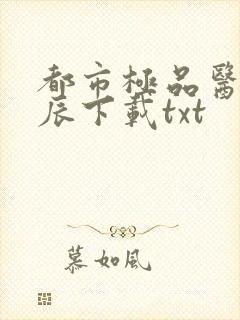 都市極品醫
辰下載txt
慕如風